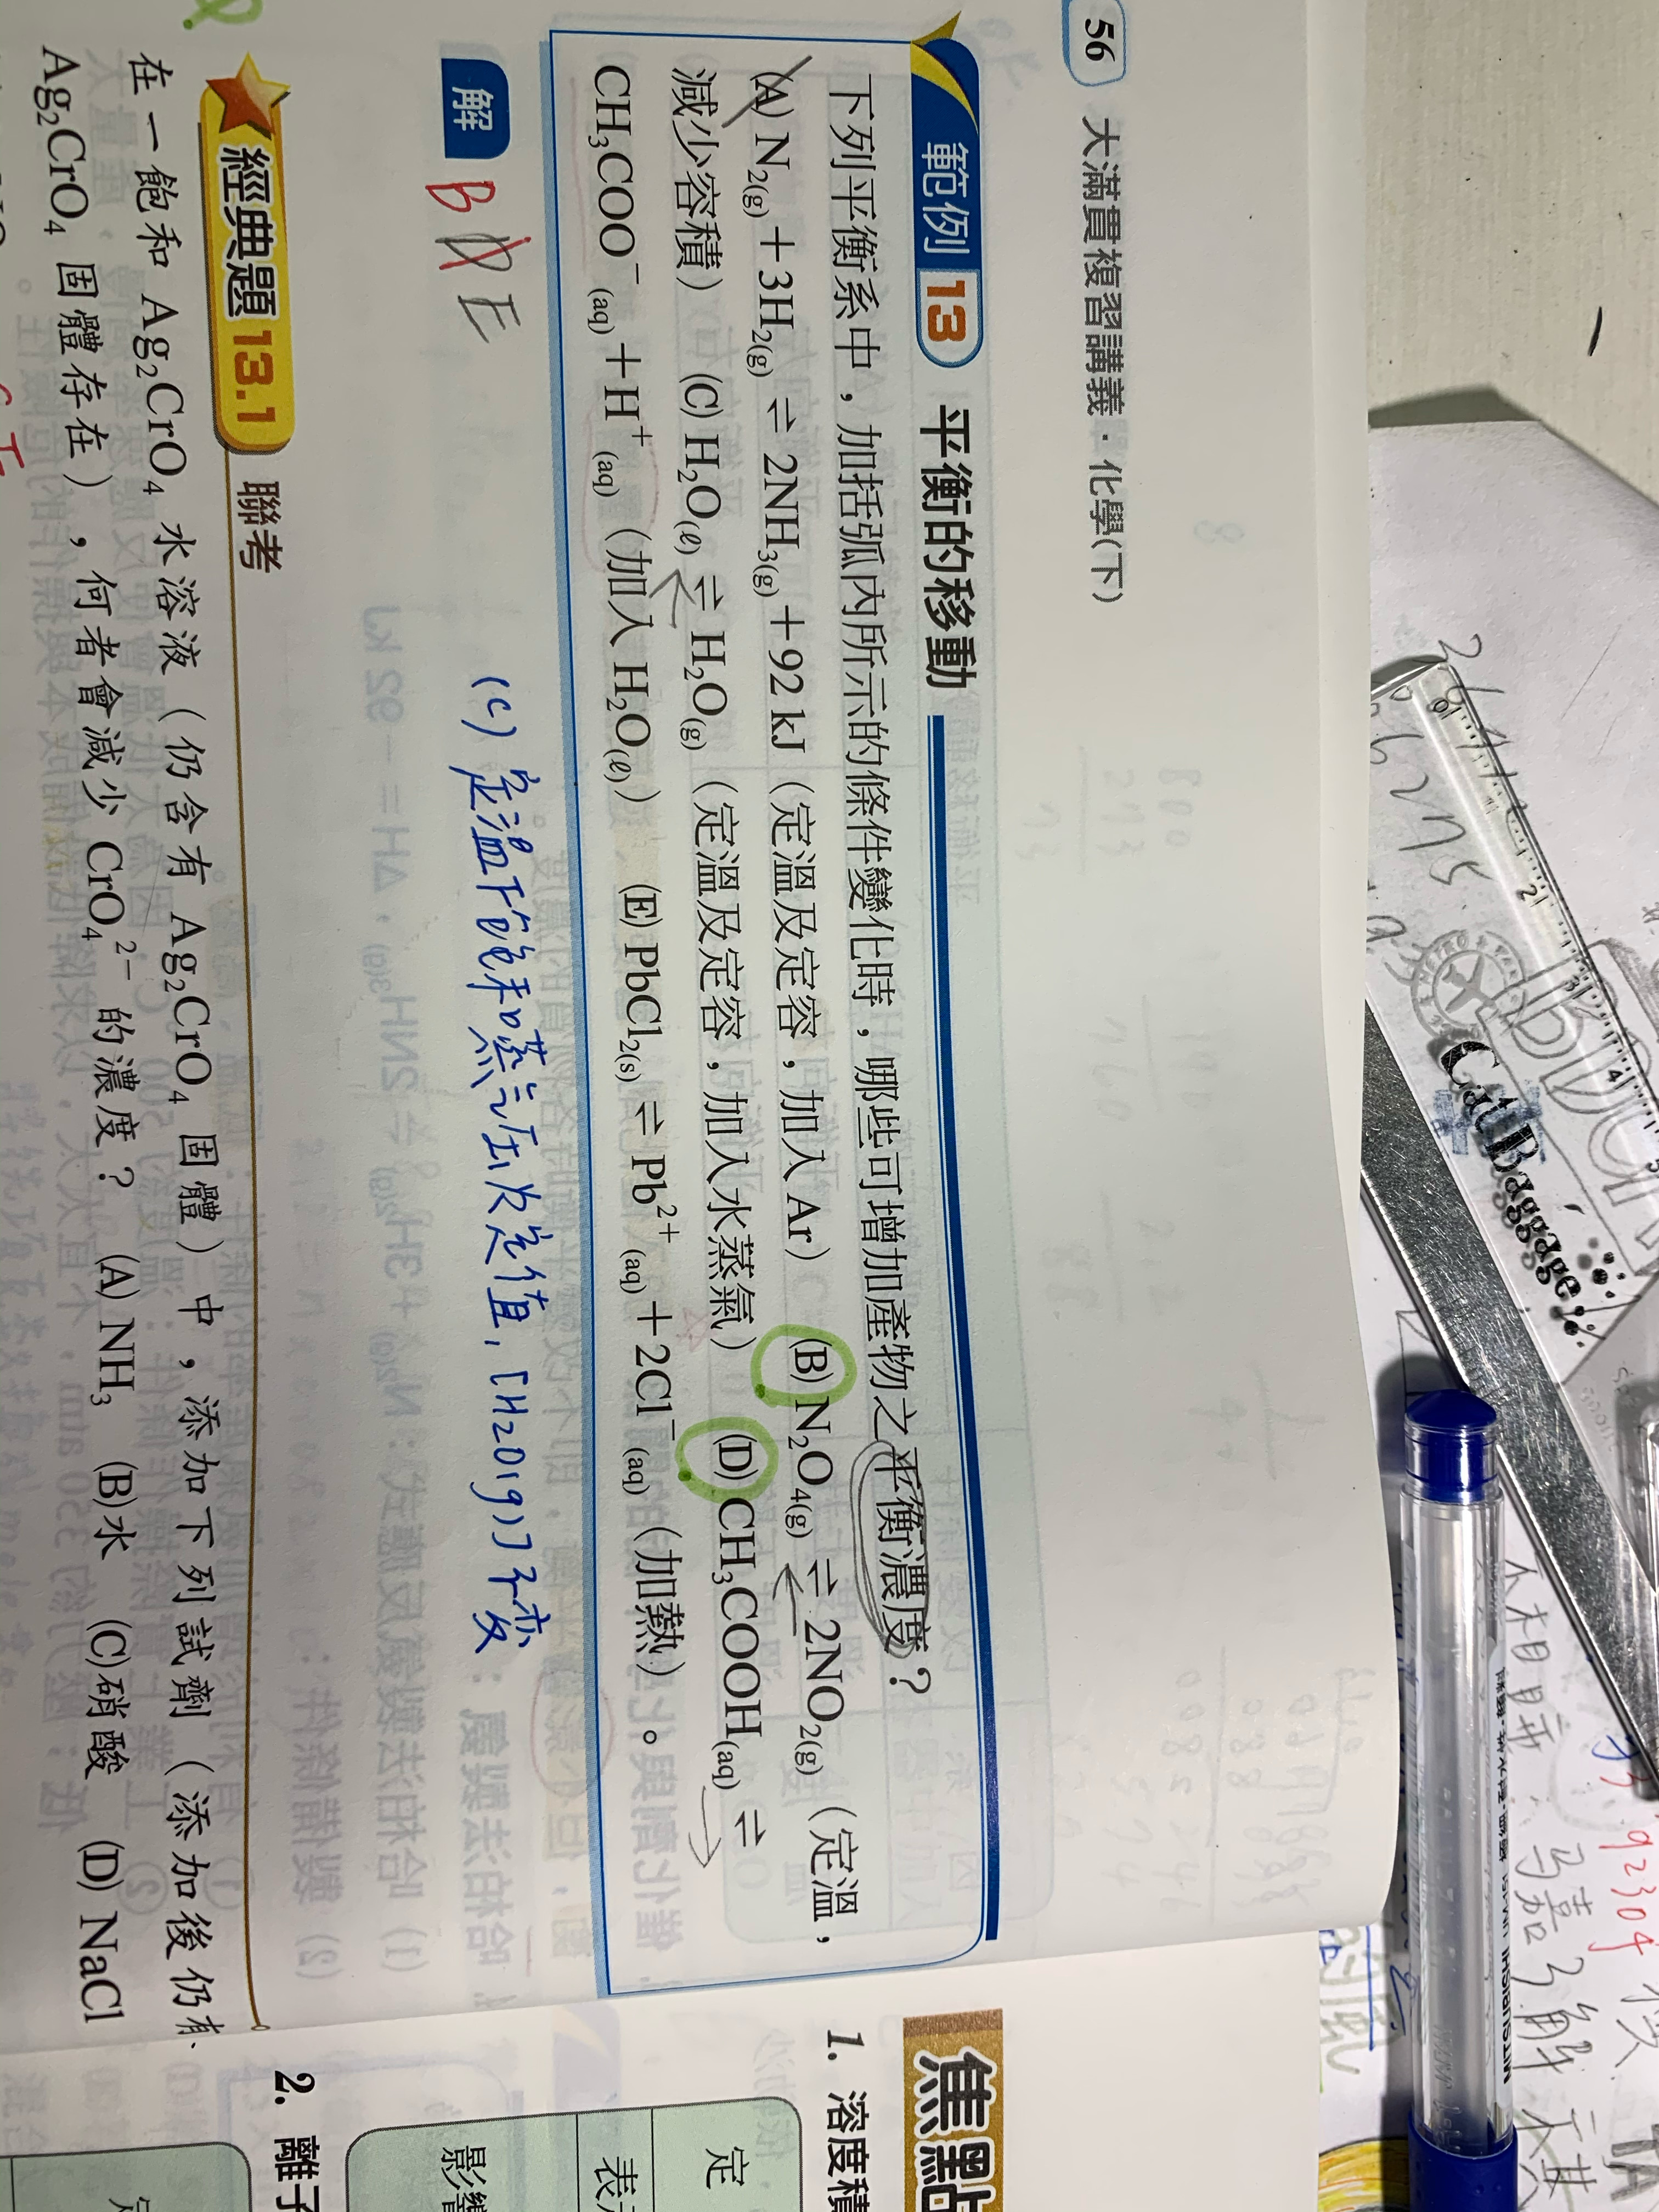 56 大滿貫複習講義・化學(下)
範例 13 平衡的移動
下列平衡系中，加括弧內所示的條件變化時，哪些可增加產物之平衡濃度？
(A) N2(g)＋3H2(g) ⇌ 2NH3(g)＋92 kJ（定溫及定容，加入 Ar） (B) N2O4(g) ⇌ 2NO2(g)（定溫，
減少容積） (C) H2O(ℓ) ⇌ H2O(g)（定溫及定容，加入水蒸氣） (D) CH3COOH(aq) ⇌
CH3COO−(aq)＋H+(aq)（加入 H2O(ℓ)） (E) PbCl2(s) ⇌ Pb2+(aq)＋2Cl−(aq)（加熱）。
解 B D E
(C) 定溫下飽和蒸氣壓為定值, [H2O(g)]不變
經典題 13.1 聯考
在一飽和 Ag2CrO4 水溶液（仍含有 Ag2CrO4 固體）中，添加下列試劑（添加後仍有
Ag2CrO4 固體存在），何者會減少 CrO4 2− 的濃度？ (A) NH3 (B)水 (C)硝酸 (D) NaCl
焦點
1. 溶度積
定
表
影響
2. 離子
CatBaggage
MITSUBISHI
92304